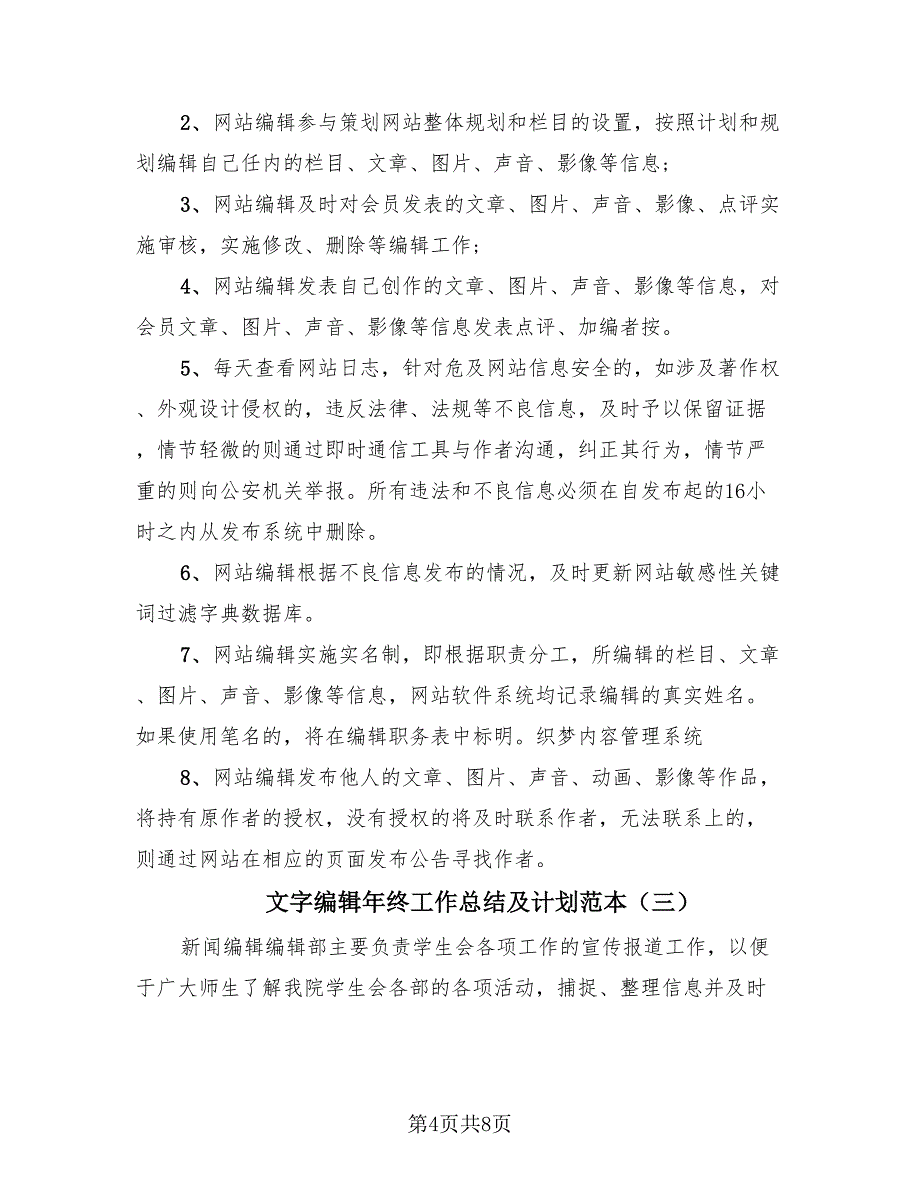 2、网站编辑参与策划网站整体规划和栏目的设置，按照计划和规
划编辑自己任内的栏目、文章、图片、声音、影像等信息;
3、网站编辑及时对会员发表的文章、图片、声音、影像、点评实
施审核，实施修改、删除等编辑工作;
4、网站编辑发表自己创作的文章、图片、声音、影像等信息，对
会员文章、图片、声音、影像等信息发表点评、加编者按。
5、每天查看网站日志，针对危及网站信息安全的，如涉及著作权
、外观设计侵权的，违反法律、法规等不良信息，及时予以保留证据
，情节轻微的则通过即时通信工具与作者沟通，纠正其行为，情节严
重的则向公安机关举报。所有违法和不良信息必须在自发布起的16小
时之内从发布系统中删除。
6、网站编辑根据不良信息发布的情况，及时更新网站敏感性关键
词过滤字典数据库。
7、网站编辑实施实名制，即根据职责分工，所编辑的栏目、文章
、图片、声音、影像等信息，网站软件系统均记录编辑的真实姓名。
如果使用笔名的，将在编辑职务表中标明。织梦内容管理系统
8、网站编辑发布他人的文章、图片、声音、动画、影像等作品，
将持有原作者的授权，没有授权的将及时联系作者，无法联系上的，
则通过网站在相应的页面发布公告寻找作者。
文字编辑年终工作总结及计划范本（三）
新闻编辑编辑部主要负责学生会各项工作的宣传报道工作，以便
于广大师生了解我院学生会各部的各项活动，捕捉、整理信息并及时
第4页共8页